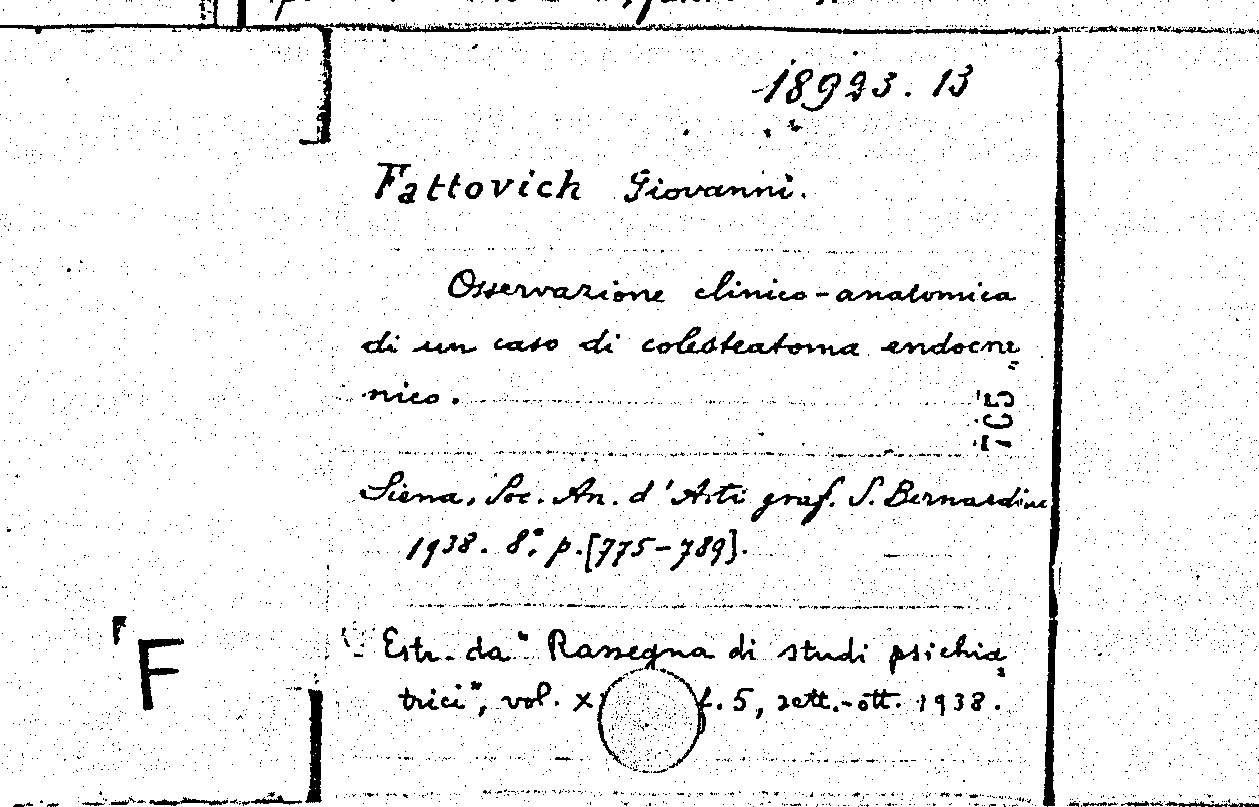 18923.13
Fattovich Giovanni.
Osservazione clinico-anatomica
di un caso di colesteatoma endocra
nico.
705
Siena, Soc. An. d'Arti graf. S. Bernardino
1938. 8°. p.[775-789].
Estr. da "Rassegna di studi psichia„
trici", vol. f. 5, sett.-ott. 1938.
F